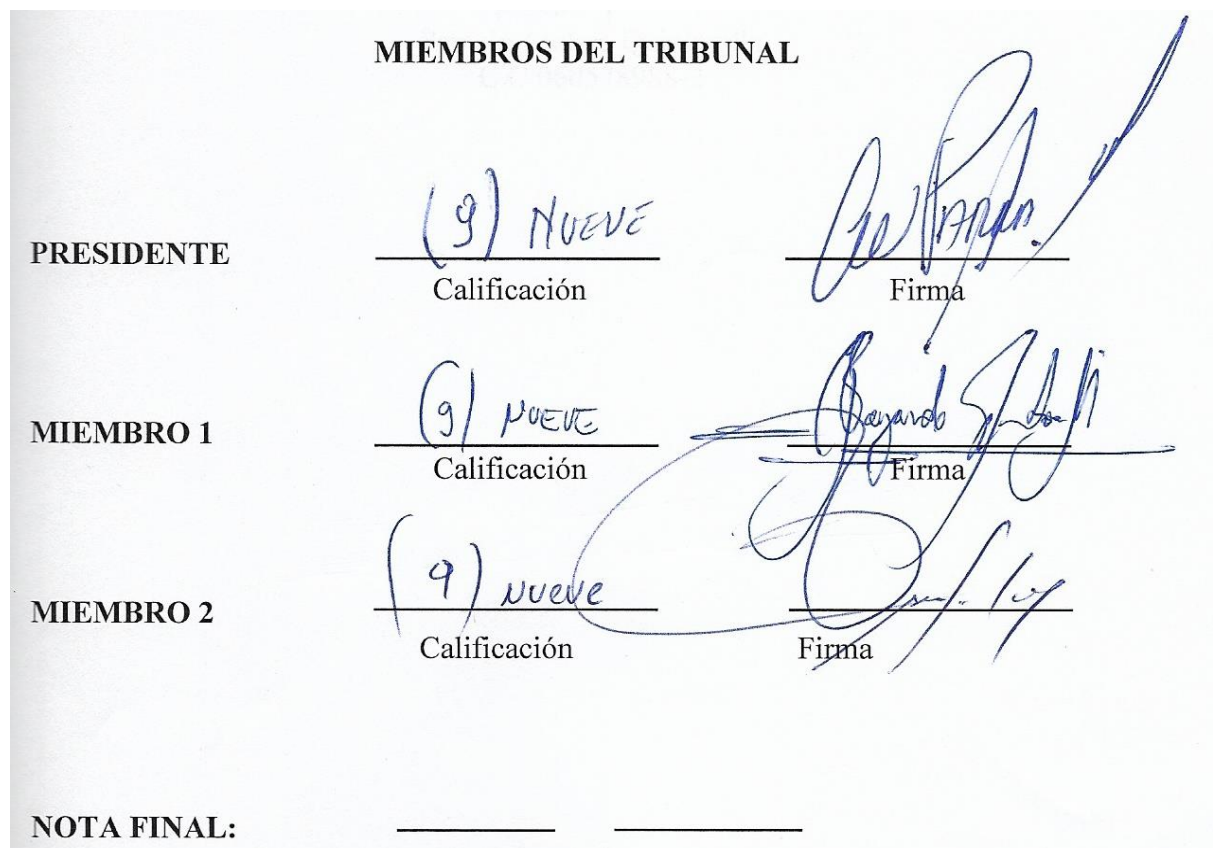 MIEMBROS DEL TRIBUNAL
PRESIDENTE (9) NUEVE
Calificación Firma
MIEMBRO 1 (9) NUEVE
Calificación Firma
MIEMBRO 2 (9) Nueve
Calificación Firma
NOTA FINAL: